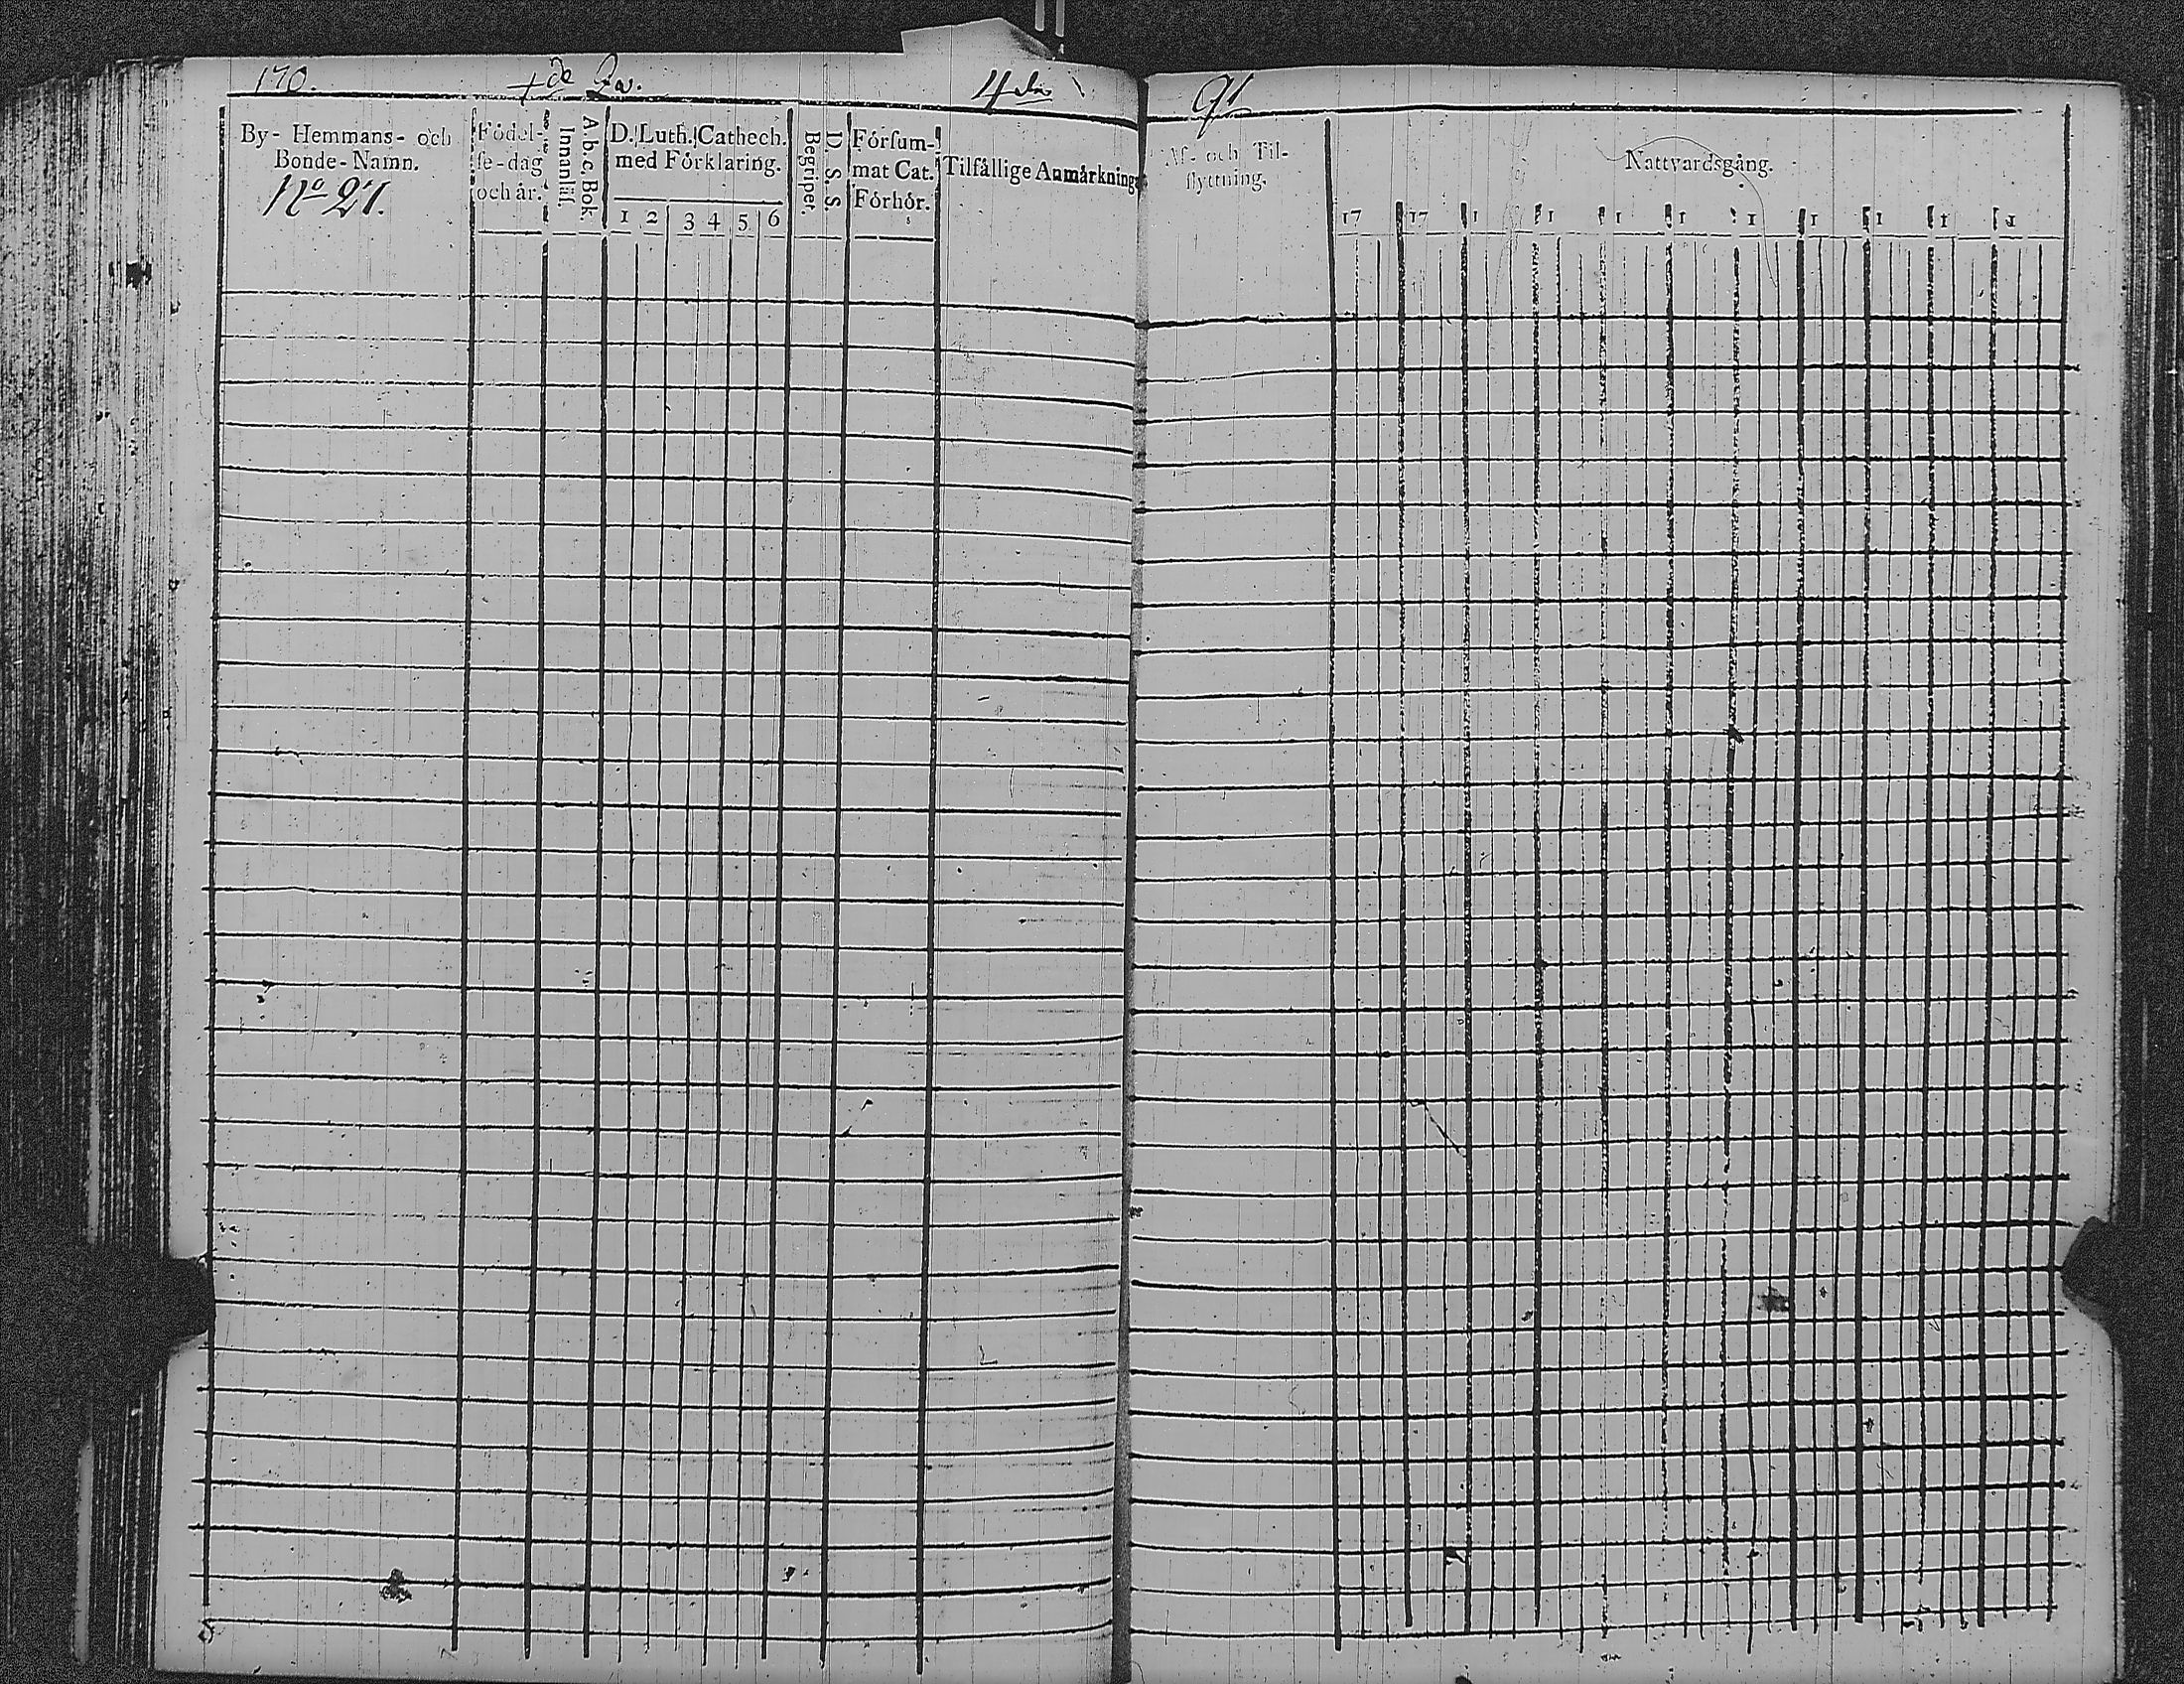 170.
4de Qv.
4de
91
By- Hemmans- och
Bonde-Namn.
No 27.
Födel-
ſe-dag
och år.
Innanläſ.
A, b, c, Bok.
D. Luth. Cathech.
med Förklaring.
1 2 3 4 5 6
Begriper.
D. S. S.
Förſum-
mat Cat.
Förhör.
Tilfällige Anmärkning
Af- och Til-
flyttning.
Nattvardsgång.
17 17 1 1 1 1 1 1 1 1 1